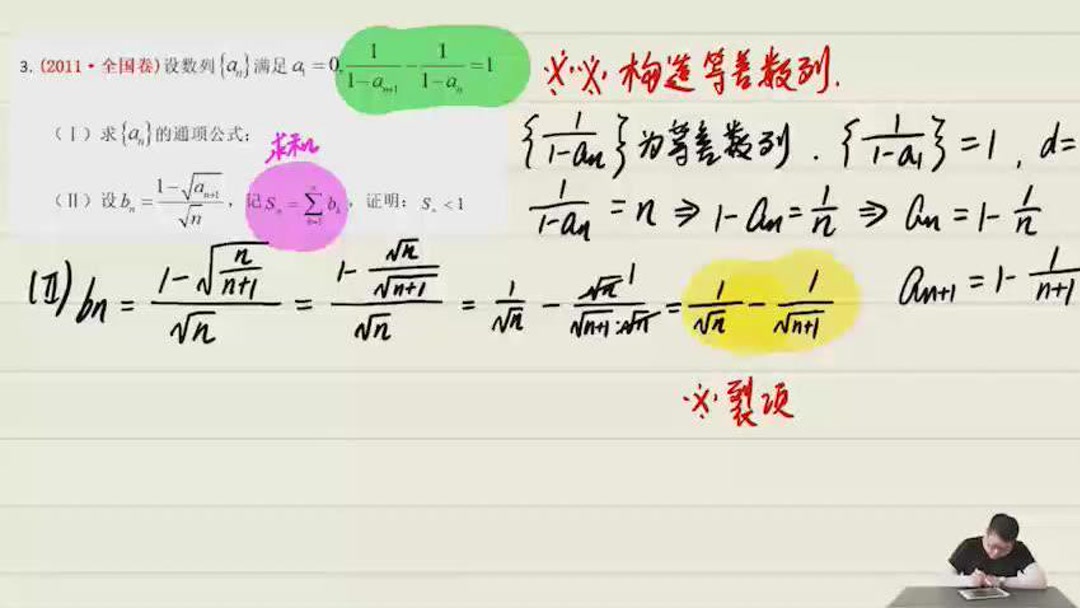 3. (2011·全国卷)设数列{aₙ}满足a₁=0, 1/(1-aₙ₊₁) - 1/(1-aₙ) =1
(Ⅰ)求{aₙ}的通项公式;
求和
(Ⅱ)设bₙ= (1-√aₙ₊₁)/√n , 记Sₙ=∑ₖ₌₁ⁿ bₖ, 证明: Sₙ<1
※※ 构造等差数列.
{1/(1-aₙ)}为等差数列. {1/(1-a₁)}=1, d=
1/(1-aₙ) = n ⇒ 1-aₙ = 1/n ⇒ aₙ = 1- 1/n
aₙ₊₁ = 1- 1/(n+1)
(Ⅱ) bₙ = (1-√(n/(n+1)))/√n = (1- √n/√(n+1))/√n = 1/√n - √n 1/(√(n+1)·√n) = 1/√n - 1/√(n+1)
※裂项